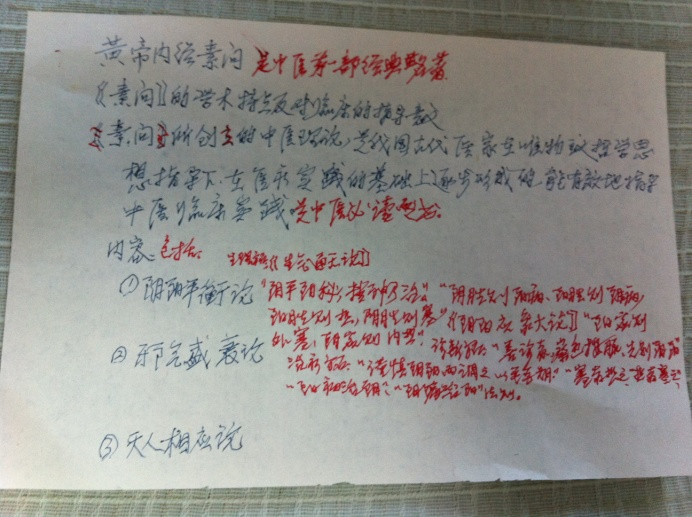 黄帝内经素问 是中医第一部经典医著
《素问》的学术特点及对临床的指导意义
《素问》所创立的中医理论，是我国古代医家在唯物主义哲学思
想指导下，在医疗实践的基础上逐步形成的，能有效地指导
中医临床实践 是中医必读
内容：包括： 《生气通天论》
①阴阳平衡论 "阴平阳秘，精神乃治"，"阴胜则阳病，阳胜则阴病，
阳胜则热，阴胜则寒"《阴阳应象大论》"阳虚则
外寒，阴虚则内热"， "善诊者，察色按脉，先别阴阳"
②邪气盛衰论 "谨察阴阳而调之，以平为期"
"阳病治阴"，"阴病治阳"法则。
③天人相应说